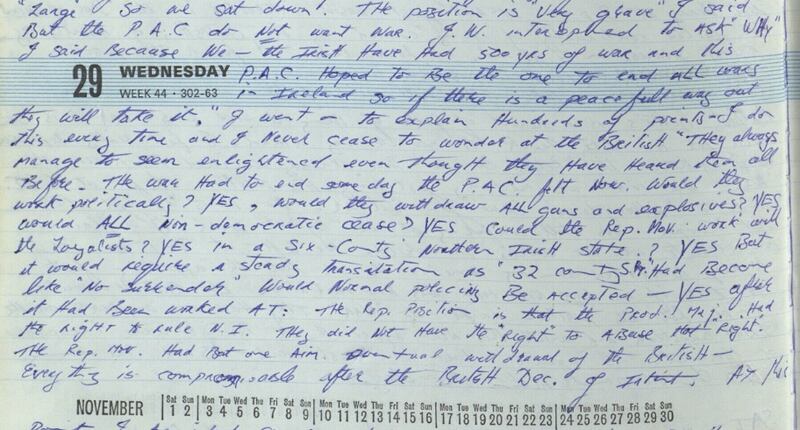 "Large" So we sat down. The position is "Very grave" I said
But the P.A.C do Not want War. J.W. interrupted to ASK "WHY"
I said Because We - the Irish Have Had 500 yrs of war and this
29 WEDNESDAY P.A.C. Hoped to Be the one to end ALL wars
WEEK 44 · 302-63 in Ireland so if there is a peacefull way out
they will take it." I went - to explain Hundreds of points - I do
this every time and I Never cease to wonder at the British "They always
manage to seem enlightened even thought they Have Heard them all
Before. The war Had to end some day the P.A.C. felt Now. Would they
work politically? YES, would they withdraw ALL guns and explosives? YES
would ALL Non-democratic cease? YES Could the Rep. Mov. work with
the Loyalists? YES in a Six-County Northern Irish state.? YES But
it would require a steady Translation as "32 county S.R." Had Become
like "No surrender" Would Normal policing Be Accepted - YES after
it Had Been worked AT: The Rep. Position is that the Prod. Maj. Had
the right to rule N.I. They did Not Have the "Right" to ABuse that Right.
The Rep. Mov. Had But one Aim. eventual withdrawal of the British -
Everything is compromisable after the British Dec. of Intent.
NOVEMBER Sat Sun Mon Tue Wed Thu Fri Sat Sun Mon Tue Wed Thu Fri Sat Sun Mon Tue Wed Thu Fri Sat Sun Mon Tue Wed Thu Fri Sat Sun
1 2 3 4 5 6 7 8 9 10 11 12 13 14 15 16 17 18 19 20 21 22 23 24 25 26 27 28 29 30